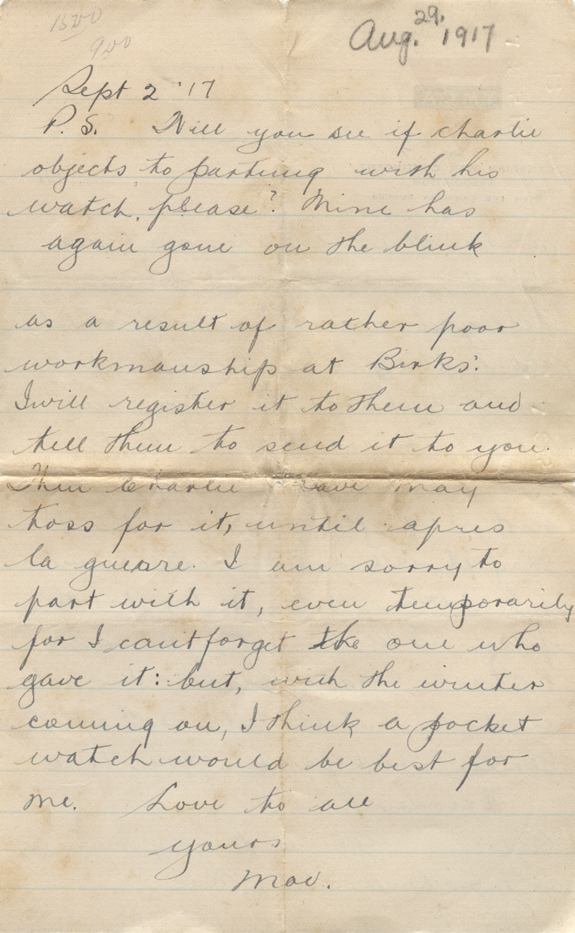 1500
900
Aug. 29, 1917
Sept 2 '17
P.S. Will you see if Charlie
objects to parting with his
watch, please? Mine has
again gone on the blink
as a result of rather poor
workmanship at Birks'.
I will register it to them and
tell them to send it to you.
Then Charlie Dave may
toss for it, until apres
la guerre. I am sorry to
part with it, even temporarily
for I cant forget the one who
gave it: but, with the winter
coming on, I think a pocket
watch would be best for
me. Love to all
yours